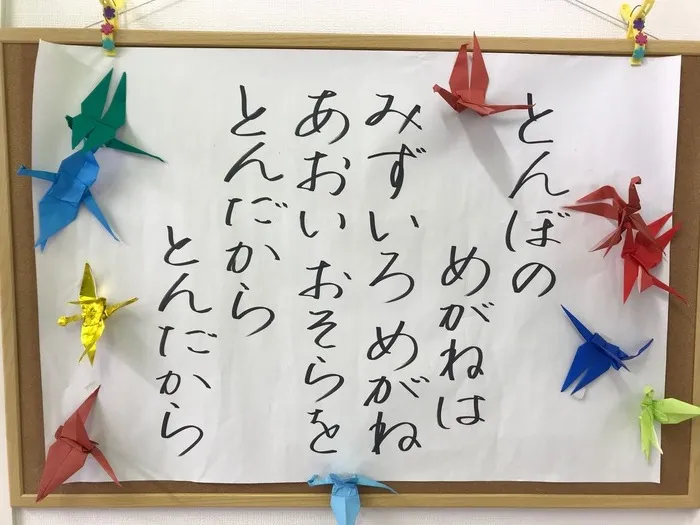 とんぼの
めがねは
みずいろ めがね
あおい おそらを
とんだから
とんだから